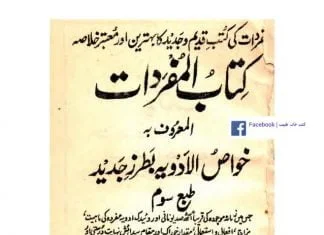 مفردات کی کتب قدیم و جدید کا بہترین اور معتبر خلاصہ
کتاب المفردات
المعروف بہ
خواص الادویہ بطرز جدید
طبع سوم
Facebook | کتب خانہ طبیب